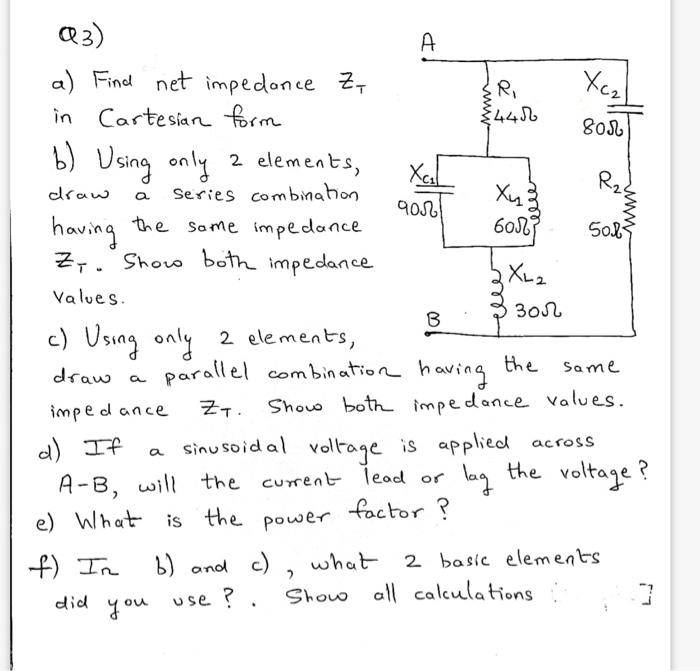 Q3)
a) Find net impedance Z_T
in Cartesian form
b) Using only 2 elements,
draw a series combination
having the same impedance
Z_T. Show both impedance
values.
c) Using only 2 elements,
draw a parallel combination having the same
impedance Z_T. Show both impedance values.
d) If a sinusoidal voltage is applied across
A-B, will the current lead or lag the voltage?
e) What is the power factor?
f) In b) and c), what 2 basic elements
did you use?. Show all calculations ]
A
R1
44Ω
XC2
80Ω
XC1
90Ω
XL1
60Ω
R2
50Ω
XL2
30Ω
B